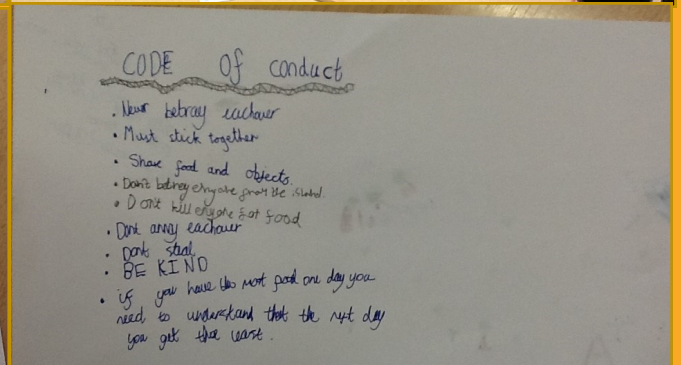 CODE Of conduct
• Never betray eachover
• Must stick together
• Share food and objects.
• Don't betrey enyone from the island.
• Dont kill enyone for food
• Dont anny eachover
• Dont steal
• BE KIND
• if you have the most food one day you
need to understand that the next day
you get the least.